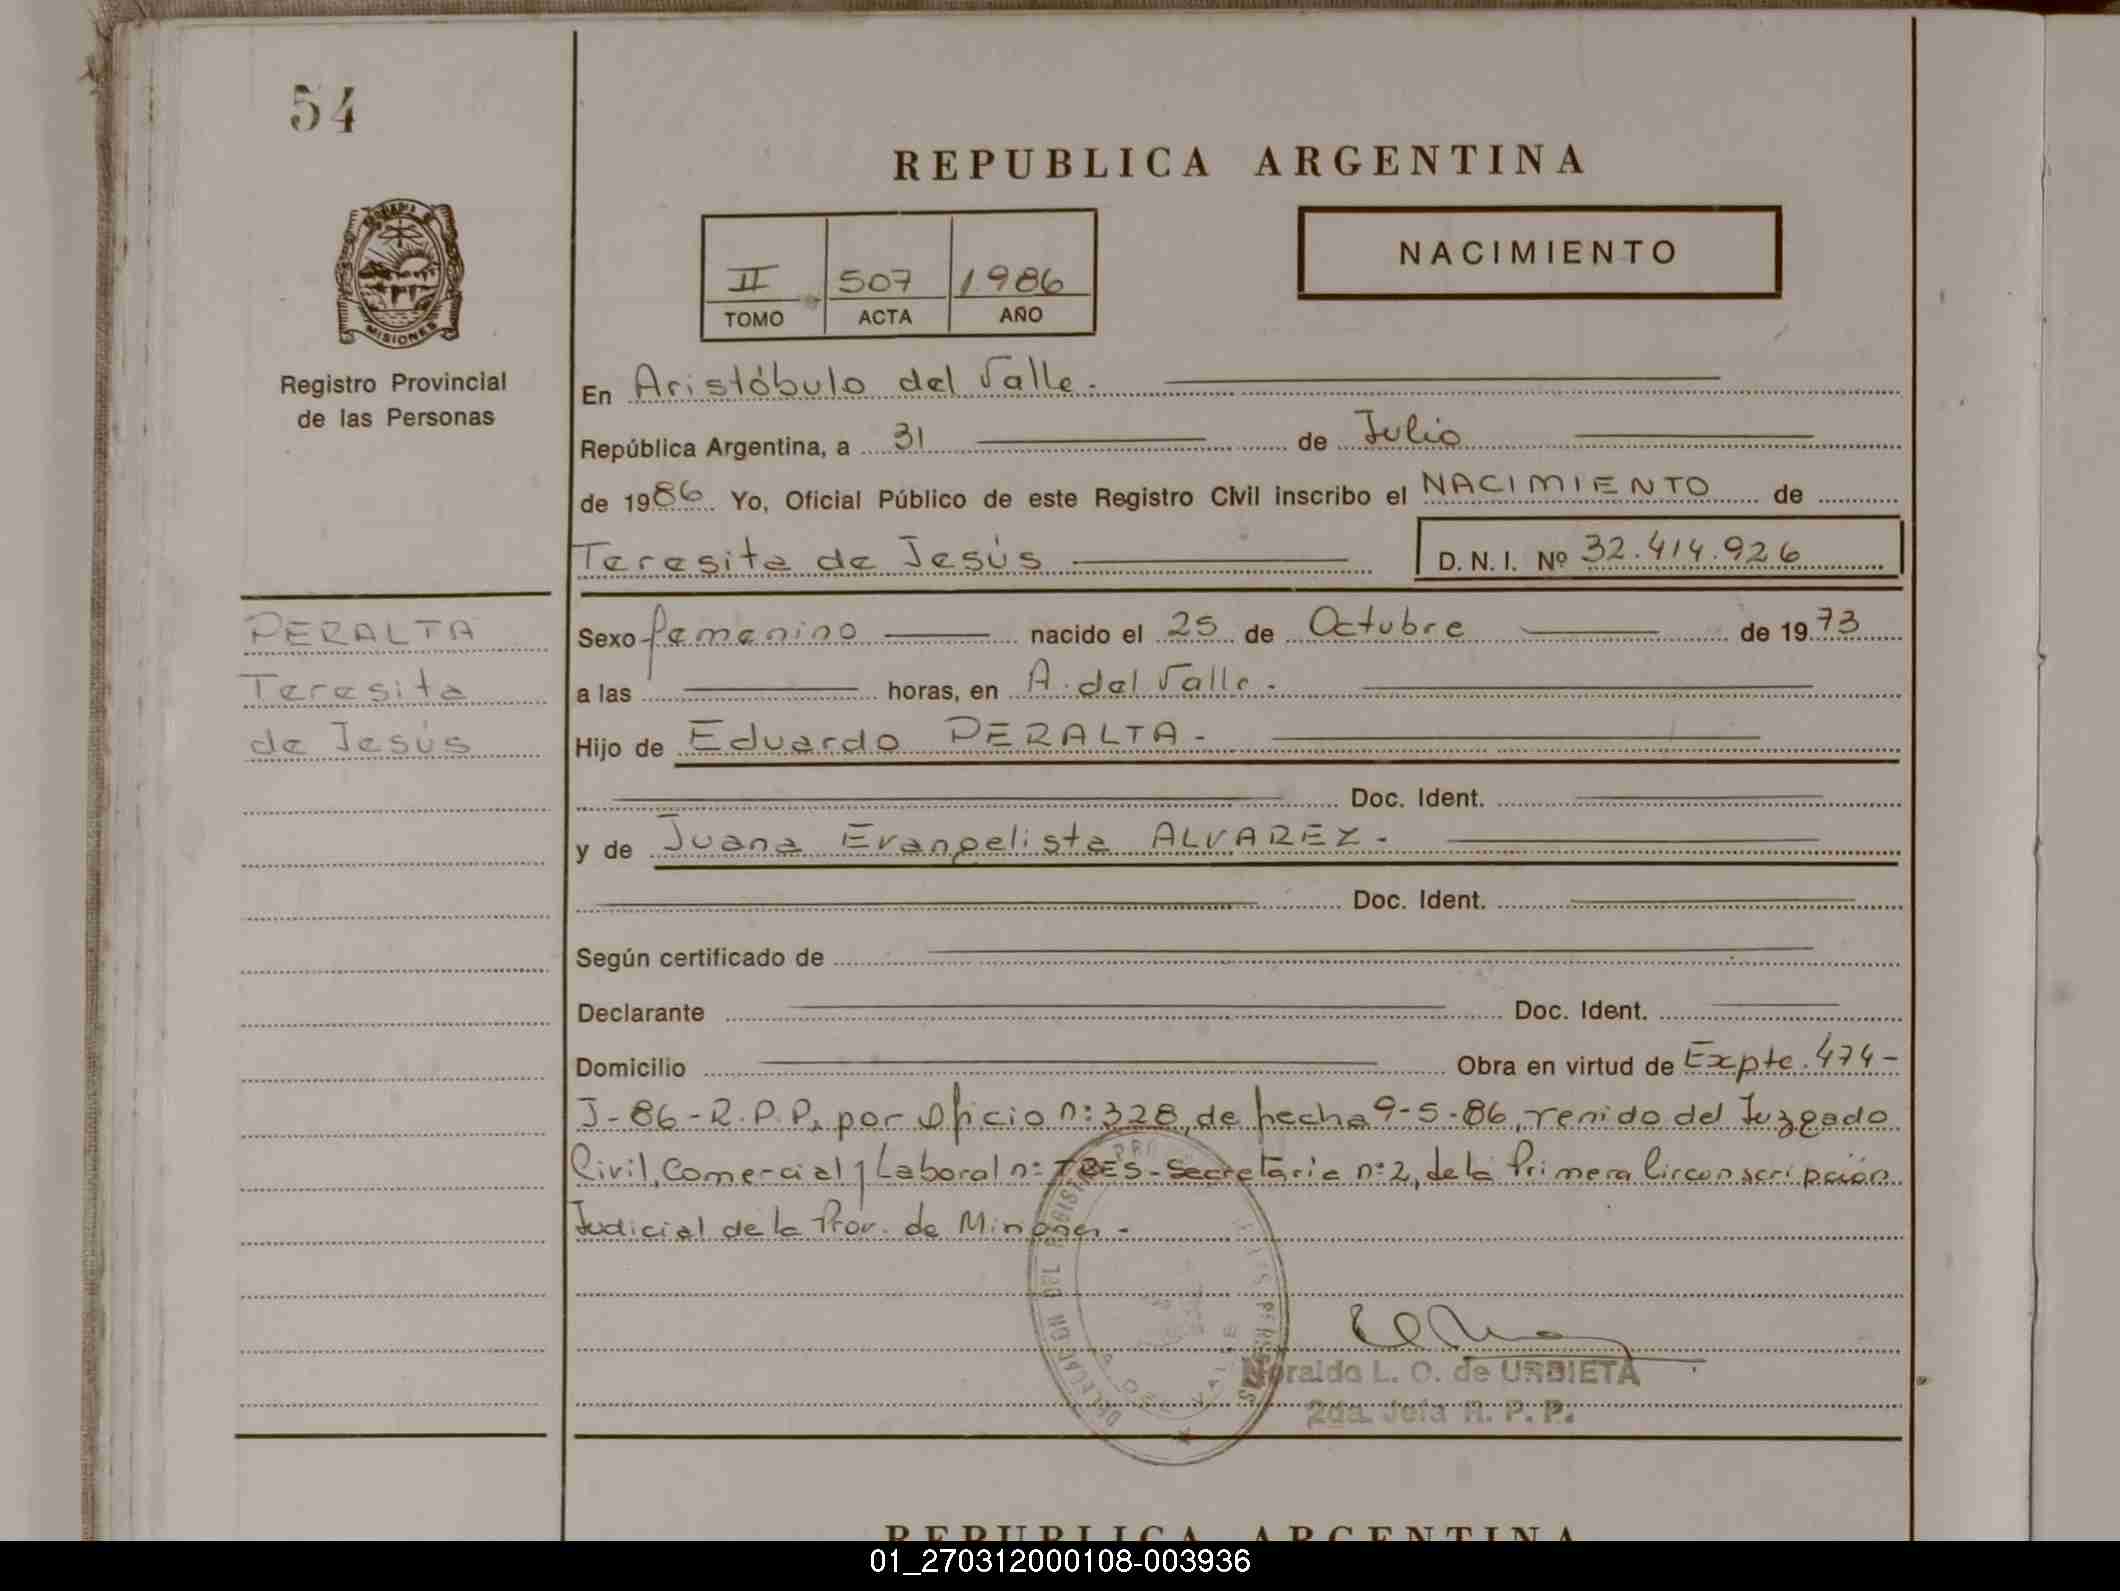 54
REPUBLICA ARGENTINA
NACIMIENTO
II 507 1986
TOMO ACTA AÑO
MISIONES
Registro Provincial
de las Personas
En Aristóbulo del Valle.
República Argentina, a 31 de Julio
de 1986 Yo, Oficial Público de este Registro Civil inscribo el NACIMIENTO de
Teresita de Jesús
D. N. I. Nº 32.414.926
PERALTA
Teresita
de Jesús
Sexo femenino nacido el 25 de Octubre de 1973
a las horas, en A. del Valle.
Hijo de Eduardo PERALTA -
Doc. Ident.
y de Juana Evangelista ALVAREZ -
Doc. Ident.
Según certificado de
Declarante Doc. Ident.
Domicilio Obra en virtud de Expte. 474-
J-86-R.P.P., por Oficio n: 328, de fecha 9-5-86, venido del Juzgado
Civil, Comercial y Laboral n: TRES-Secretaria n: 2, de la Primera Circunscripción
Judicial de la Prov. de Misiones -
DELEGACION DEL
DEL VALLE
L. O. de URBIETA
2da. Jefa R. P. P.
REPUBLICA ARGENTINA
01_270312000108-003936